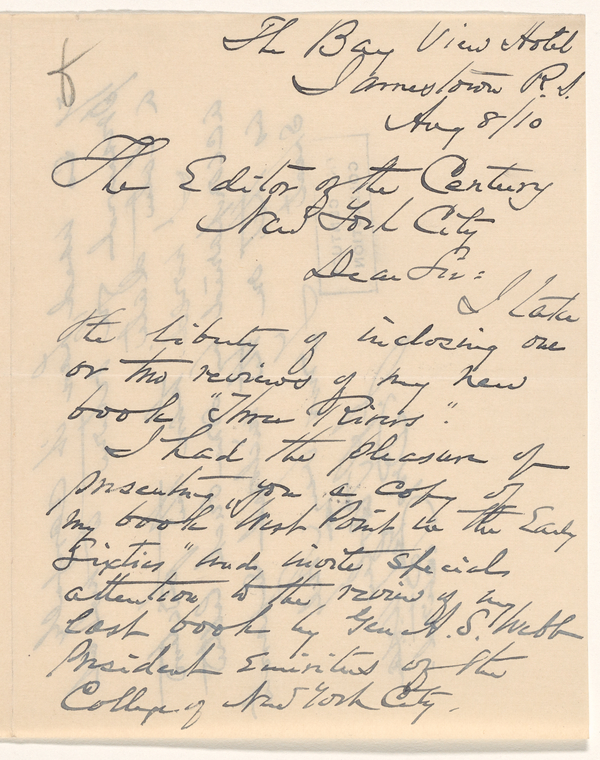 The Bay View Hotel
Jamestown R.I.
Aug 8/10
The Editor of the Century
New York City
Dear Sir:
I take
the liberty of inclosing one
or two reviews of my new
book "Three Rivers".
I had the pleasure of
presenting you a copy of
my book "West Point in the Early
Sixties" and invite special
attention to the review of my
last book by Gen A. S. Webb
President Emiritus of the
College of New York City.